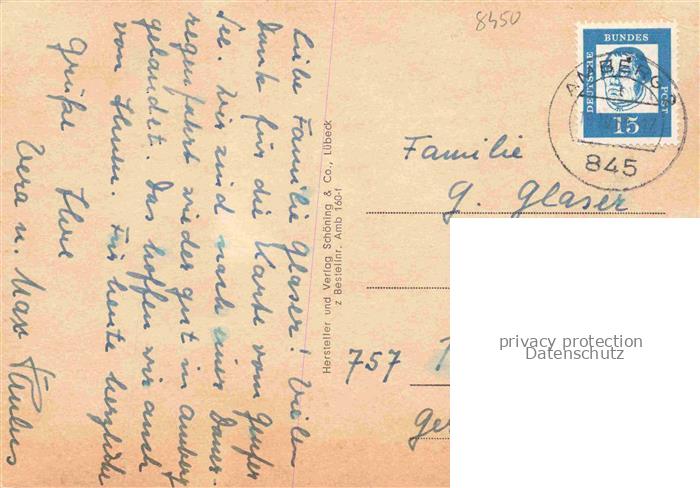 8450
Liebe Familie Glaser! Vielen
Dank für die Karte vom Genfer
See. Wir sind nach einer Dauer-
regenfahrt wieder gut in Amberg
gelandet. Das hoffen wir auch
von Ihnen. Für heute herzliche
Grüße Ihre
Vera u. Max
Hersteller und Verlag Schöning & Co., Lübeck
z Bestellnr. Amb 160-f
DEUTSCHE
BUNDES
POST
15
AMBERG
845
Familie
G. Glaser
757
privacy protection
Datenschutz